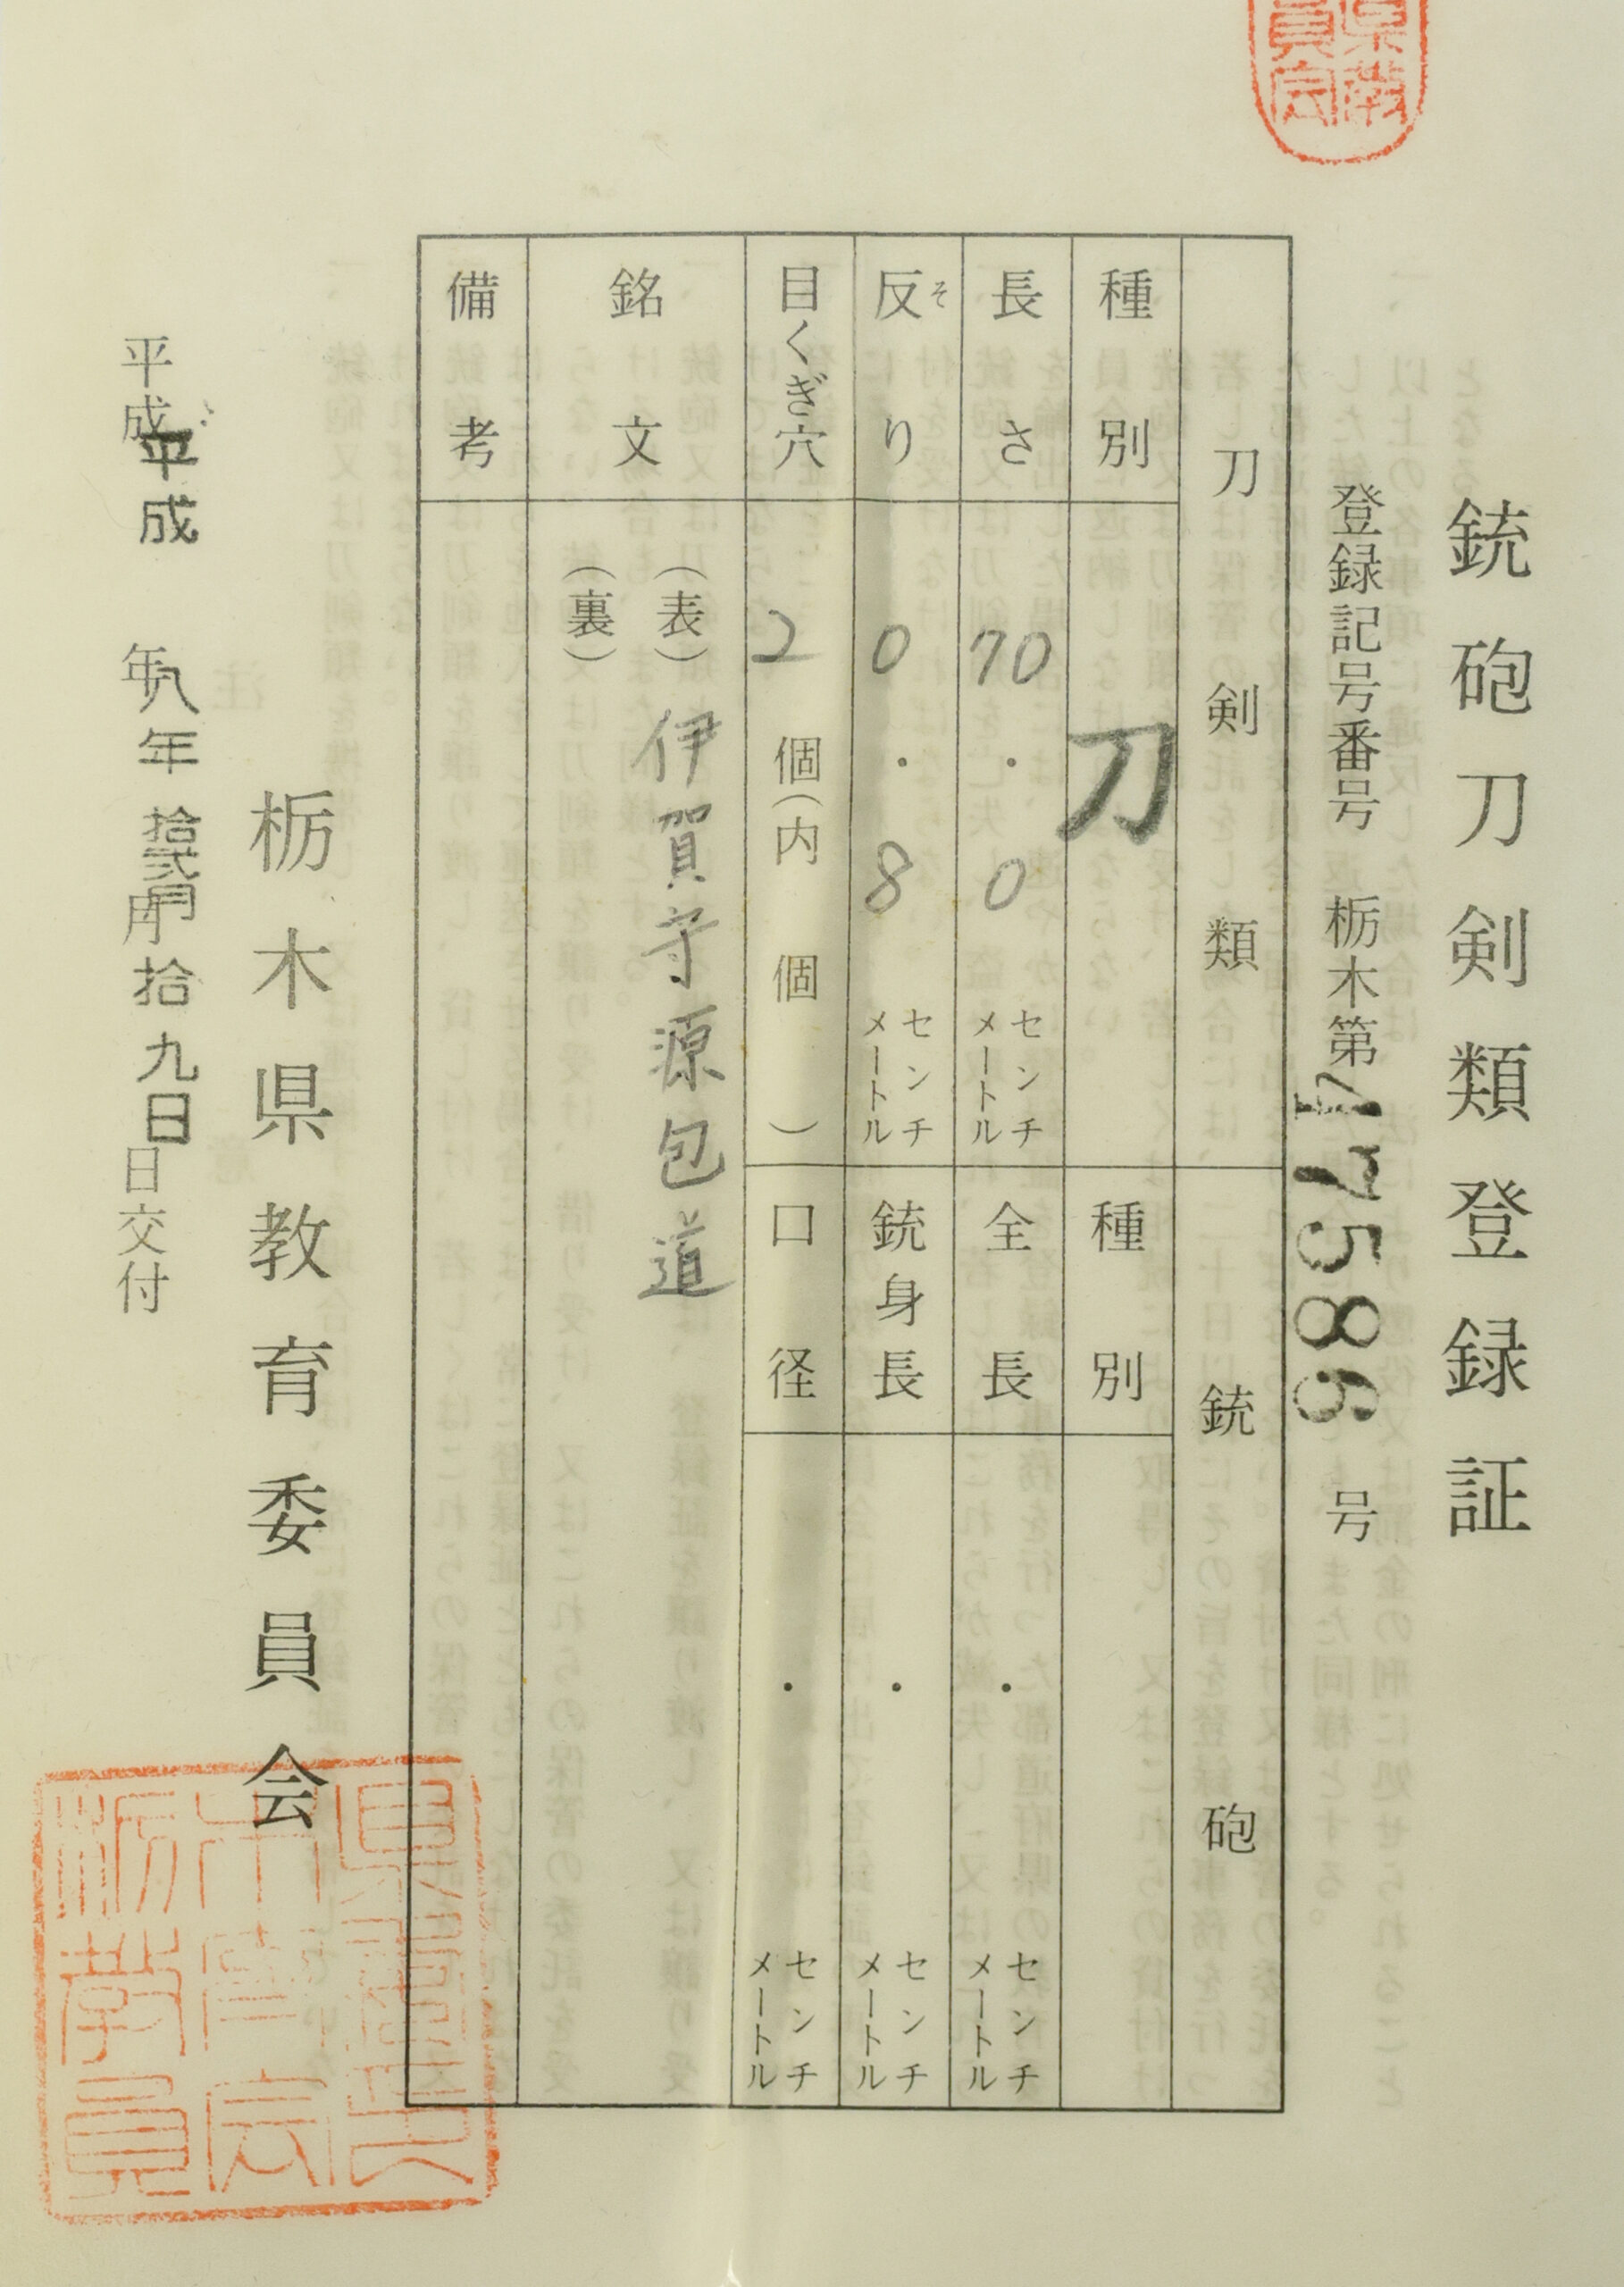 銃砲刀剣類登録証
登録記号番号 栃木第47586号
刀剣類
種別 刀
長さ 70.0 センチメートル
反り そ 0.8 センチメートル
目くぎ穴 2個(内 個)
銃砲
種別
全長 . センチメートル
銃身長 . センチメートル
口径 . センチメートル
銘文 (表) 伊賀守源包道
(裏)
備考
栃木県教育委員会
平成 年 月 日交付
平成八年拾弐月拾九日